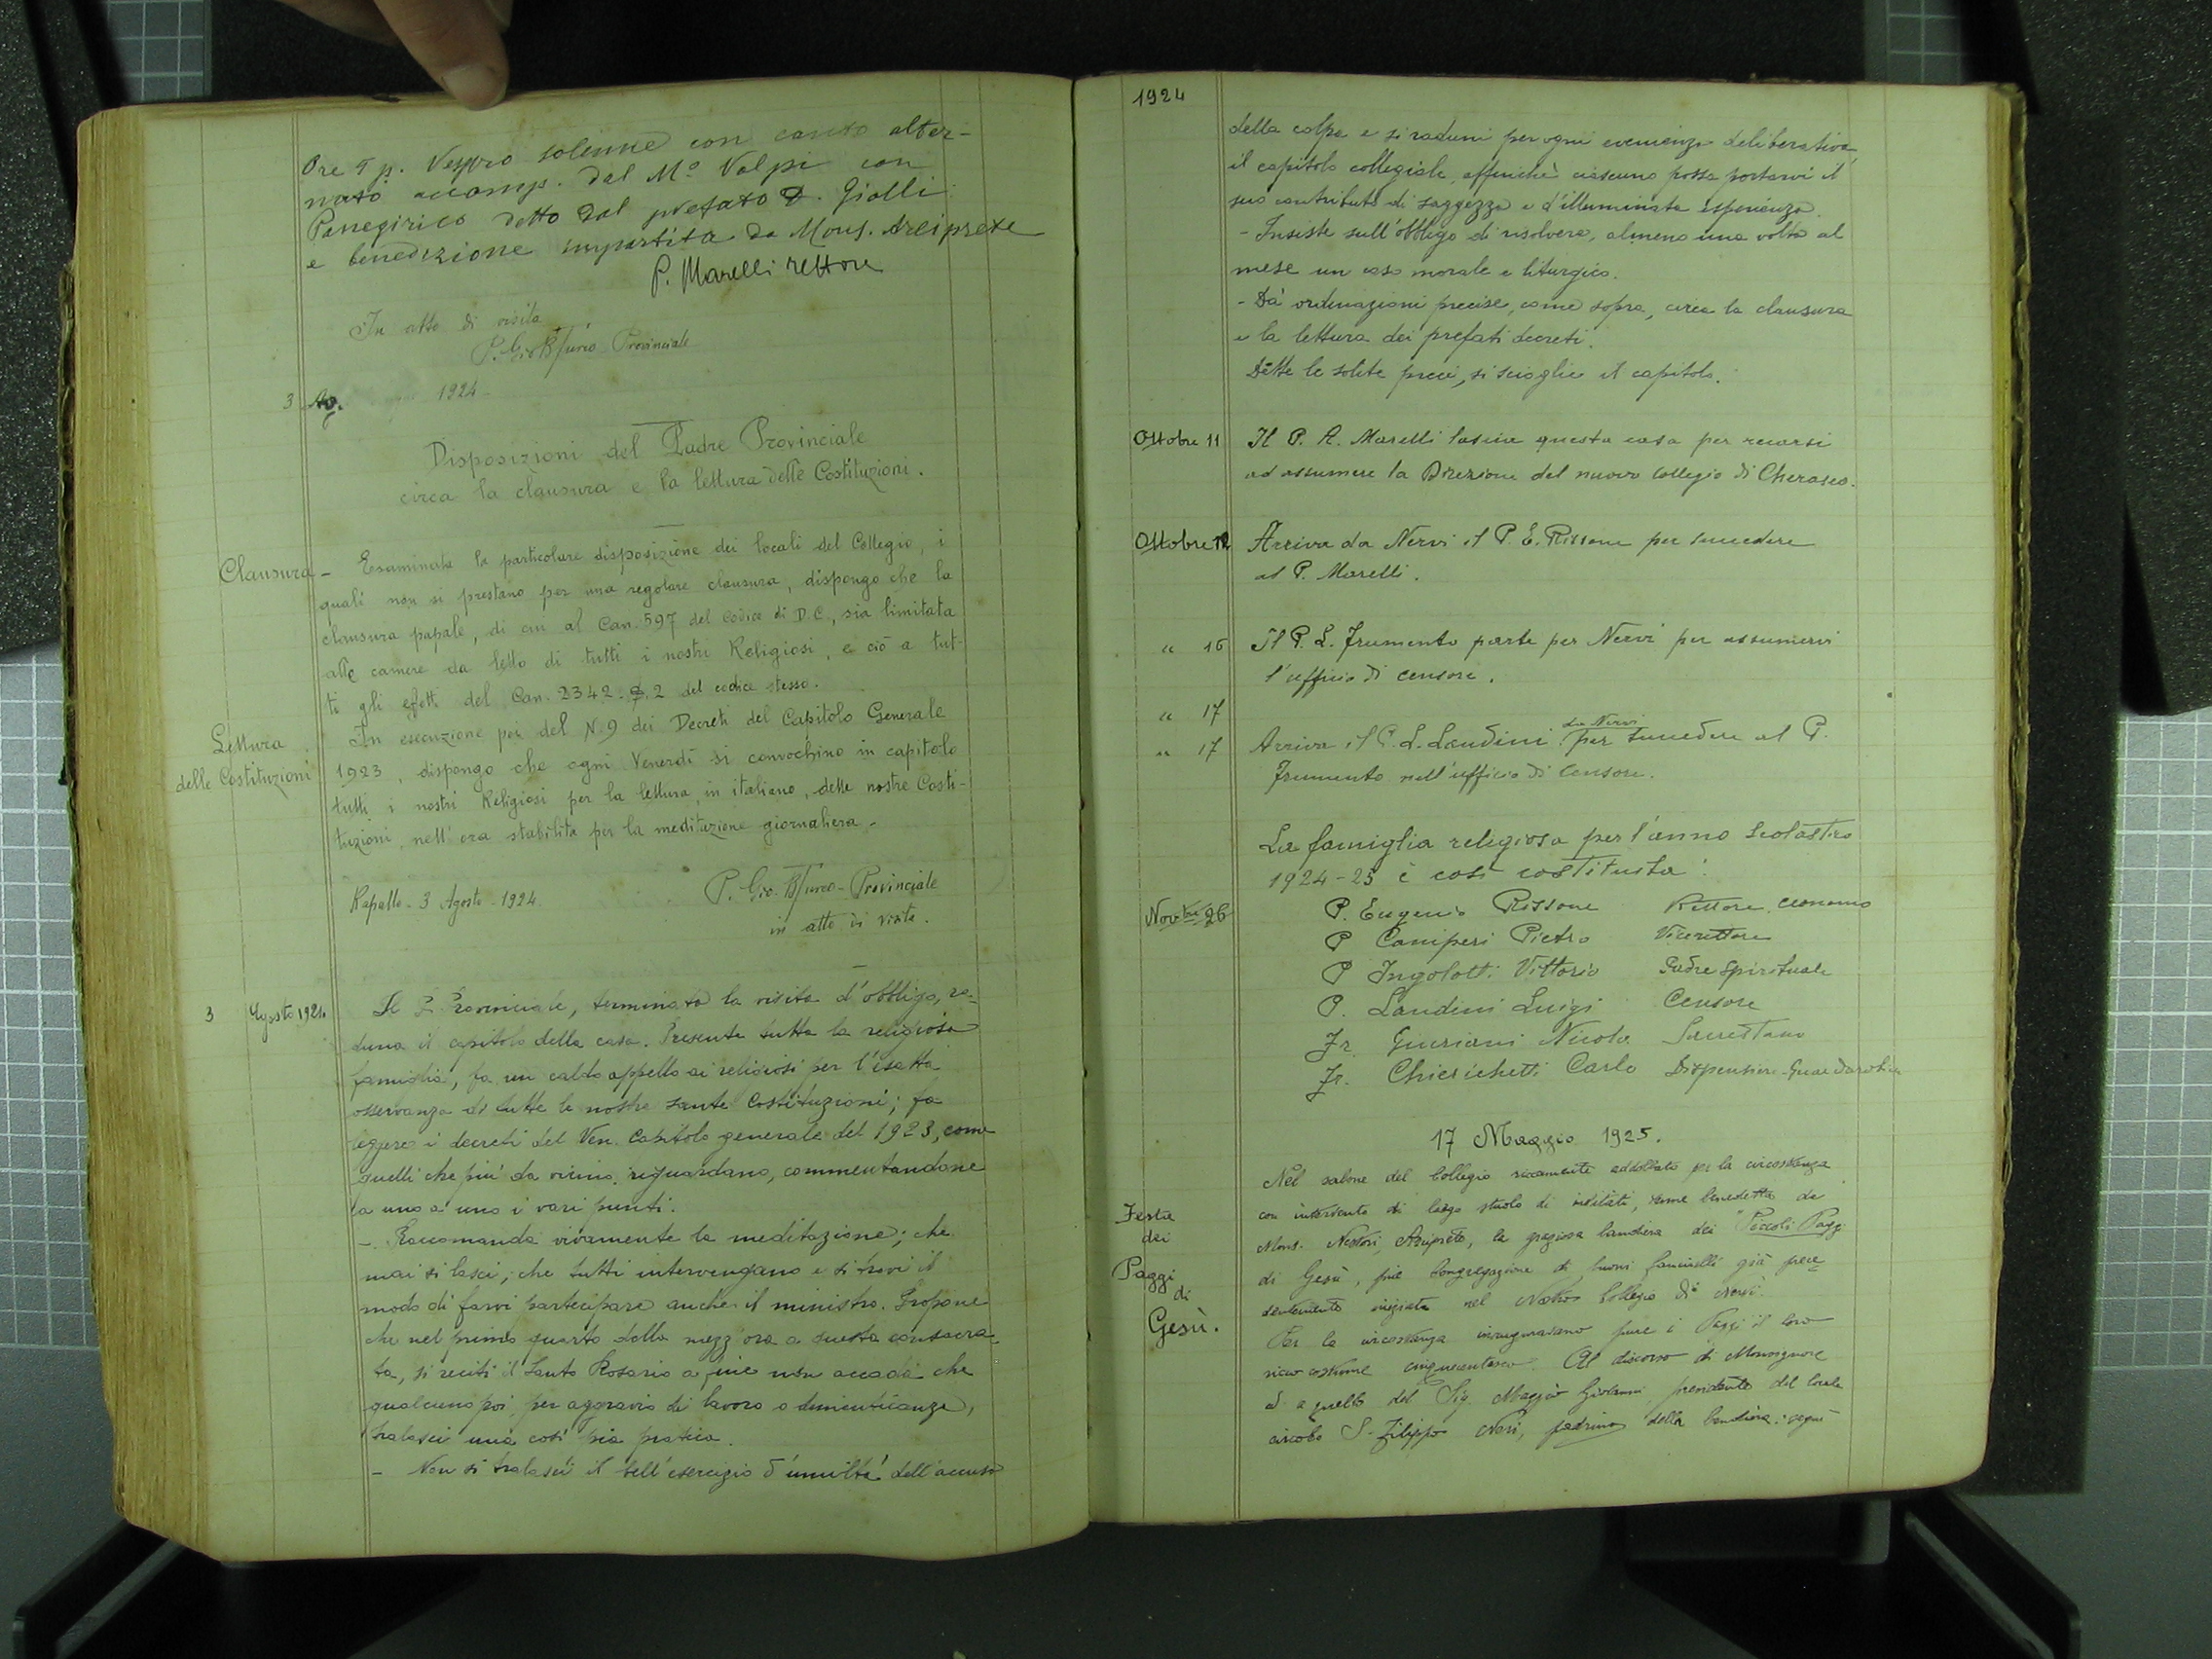 Ore 5 p. Vespro solenne con canto alter-
nato accomp. dal M° Volpi con
Panegirico detto dal prefato D. Giolli
e benedizione impartita da Mons. Arciprete
P. Marelli rettore
In atto di visita
P. Gio. B. Turco Provinciale
3 Ag. 1924
Disposizioni del Padre Provinciale
circa la clausura e la lettura delle Costituzioni.
Clausura - Esaminata la particolare disposizione dei locali del Collegio, i
quali non si prestano per una regolare clausura, dispongo che la
clausura papale, di cui al Can. 597 del Codice di D.C., sia limitata
alle camere da letto di tutti i nostri Religiosi, e ciò a tut-
ti gli effetti del Can. 2342. §. 2 del codice stesso.
Lettura
delle Costituzioni
In esecuzione poi del N. 9 dei Decreti del Capitolo Generale
1923, dispongo che ogni Venerdì si convochino in capitolo
tutti i nostri Religiosi per la lettura, in italiano, delle nostre Costi-
tuzioni, nell'ora stabilita per la meditazione giornaliera.
Rapallo - 3 Agosto - 1924
P. Gio. B. Turco - Provinciale
in atto di visita.
3 Agosto 1924
Il P. Provinciale, terminata la visita d'obbligo, ra-
duna il capitolo della casa. Presente tutta la religiosa
famiglia, fa un caldo appello ai religiosi per l'esatta
osservanza di tutte le nostre sante Costituzioni; fa
leggere i decreti del Ven. Capitolo generale del 1923, come
quelli che più da vicino riguardano, commentandone
a uno a uno i vari punti.
- Raccomanda vivamente la meditazione; che
mai si lasci; che tutti intervengano e si trovi il
modo di farvi partecipare anche il ministro. Propone
che nel primo quarto della mezz'ora a questa consacra-
ta, si reciti il Santo Rosario a fine non accada che
qualcuno poi, per aggravio di lavoro o dimenticanza,
tralasci una così pia pratica.
- Non si tralasci il bell'esercizio d'umiltà dell'accusa
1924
della colpa e si raduni per ogni evenienza deliberativa,
il capitolo collegiale, affinchè ciascuno possa portarvi il
suo contributo di saggezza e d'illuminata esperienza.
- Insiste sull'obbligo di risolvere, almeno una volta al
mese un caso morale e liturgico.
- Dà ordinazioni precise, come sopra, circa la clausura
e la lettura dei prefati decreti.
Dette le solite preci, si scioglie il capitolo.
Ottobre 11 Il P. A. Marelli lascia questa casa per recarsi
ad assumere la Direzione del nuovo Collegio di Cherasco.
Ottobre 12 Arriva da Nervi il P. E. Rissone per succedere
al P. Marelli.
" 16 Il P. L. Frumento parte per Nervi per assumervi
l'ufficio di censore.
" 17
" 17 Arriva il P. L. Landini da Nervi per succedere al P.
Frumento nell'ufficio di Censore.
La famiglia religiosa per l'anno scolastico
1924-25 è così costituita:
Novbre 26 P. Eugenio Rissone Rettore, economo
P Caniperi Pietro Vicerettore
P Ingolotti Vittorio Padre Spirituale
P. Landini Luigi Censore
Fr. Giuriani Nicola Sacrestano
Fr. Chierichetti Carlo Dispensiere-Guardarobie
17 Maggio 1925.
Festa
dei
Paggi
di
Gesù.
Nel salone del Collegio riccamente addobbato per la circostanza
con intervento di largo stuolo di invitati, venne benedetta da
Mons. Nestori, Arciprete, la graziosa bandiera dei "Piccoli Paggi
di Gesù, pia Congregazione di buoni fanciulli già prece
dentemente iniziata nel Nostro Collegio di Nervi.
Per la circostanza inauguravano pure i Paggi il loro
ricco costume cinquecentesco. Al discorso di Monsignore
e a quello del Sig. Maggio Giovanni presidente del locale
circolo S. Filippo Neri, padrino della bandiera: seguì